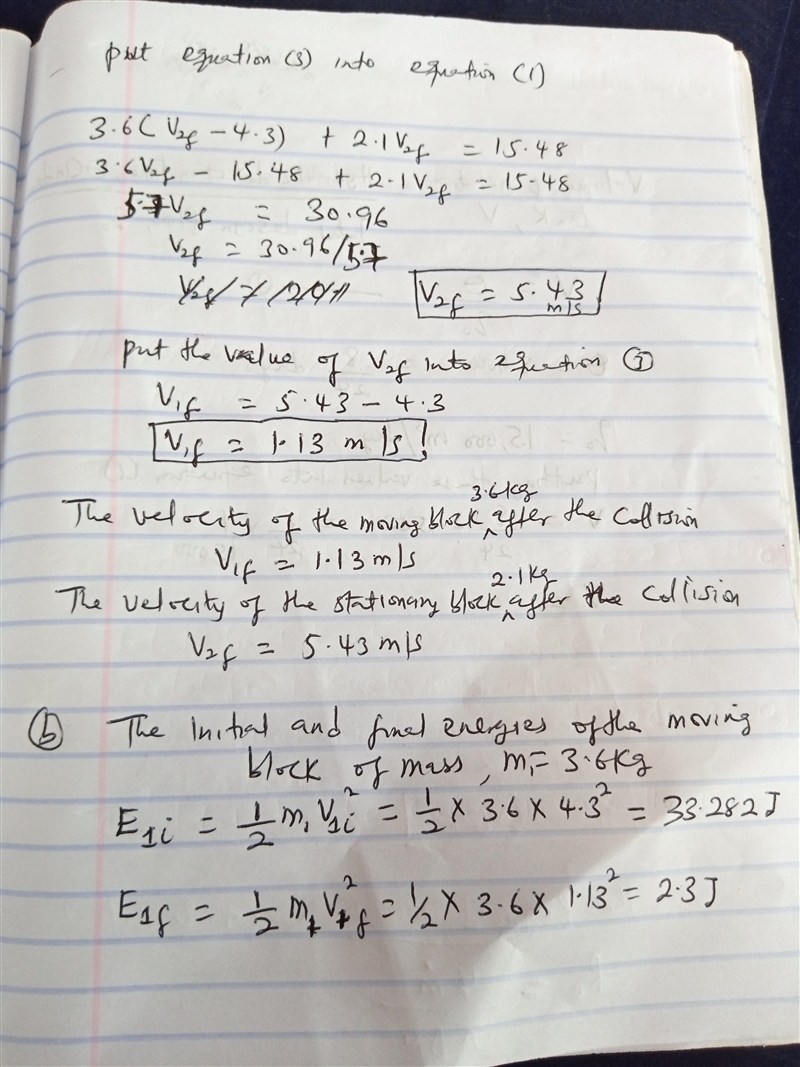 put equation (3) into equation (1)
3.6(V2f - 4.3) + 2.1V2f = 15.48
3.6V2f - 15.48 + 2.1V2f = 15.48
5.7V2f = 30.96
V2f = 30.96/5.7
V2f = 5.43 m/s
put the value of V2f into equation (3)
V1f = 5.43 - 4.3
V1f = 1.13 m/s
The velocity of the moving block 3.6kg after the collision
V1f = 1.13 m/s
The velocity of the stationary block 2.1kg after the collision
V2f = 5.43 m/s
(b) The initial and final energies of the moving
block of mass, m1 = 3.6kg
E1i = 1/2 m1 V1i² = 1/2 × 3.6 × 4.3² = 33.282 J
E1f = 1/2 m1 V1f² = 1/2 × 3.6 × 1.13² = 2.3 J